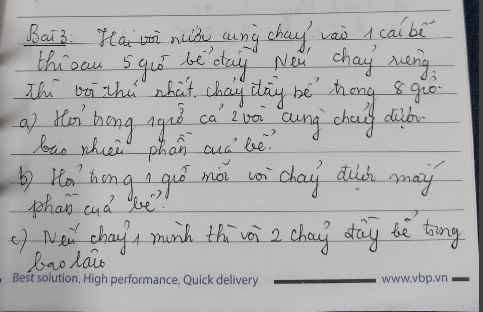 Bài 3: Hai vòi nước cùng chảy vào 1 cái bể
thì sau 5 giờ bể đầy Nếu chảy riêng
thì vòi thứ nhất chảy đầy bể trong 8 giờ.
a) Hỏi trong 1 giờ cả 2 vòi cùng chảy được
bao nhiêu phần của bể?
b) Hỏi trong 1 giờ mỗi vòi chảy được mấy
phần của bể?
c) Nếu chảy 1 mình thì vòi 2 chảy đầy bể trong
bao lâu
Best solution, High performance, Quick delivery www.vbp.vn